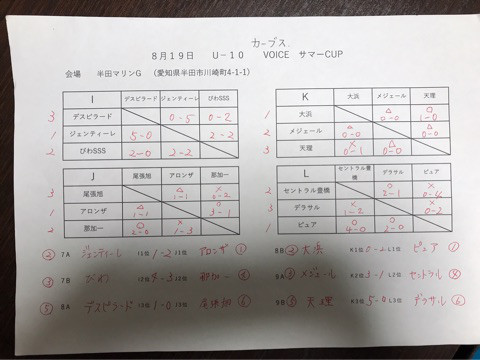 カーブス
8月19日 U-10 VOICE サマーCUP
会場 半田マリンG (愛知県半田市川崎町4-1-1)
I デスピラード ジェンティーレ びわSSS
3 デスピラード 0-5 0-2
1 ジェンティーレ 5-0 2-2
2 びわSSS 2-0 2-2
K 大浜 メジェール 天理
1 大浜 △ 0-0 ○ 1-0
2 メジェール △ 0-0 △ 0-0
3 天理 × 0-1 △ 0-0
J 尾張旭 アロンザ 那加一
3 尾張旭 △ 1-1 ×
1 アロンザ △ 1-1 ○ 3-1
2 那加一 ○ × 1-3
L セントラル豊橋 デラサル ピュア
2 セントラル豊橋 ○ 2-1 × 0-4
3 デラサル × 1-2 × 0-2
1 ピュア ○ 4-0 ○ 2-0
② 7A ジェンティーレ I1位 1-2 J1位 アロンザ ①
③ 7B びわ I2位 4-3 J2位 那加一 ④
⑤ 8A デスピラード I3位 1-0 J3位 尾張旭 ⑥
8B ② 大浜 K1位 0-2 L1位 ピュア ①
9A ③ メジェール K2位 3-1 L2位 セントラル
9B ⑤ 天理 K3位 5-0 L3位 デラサル ⑥